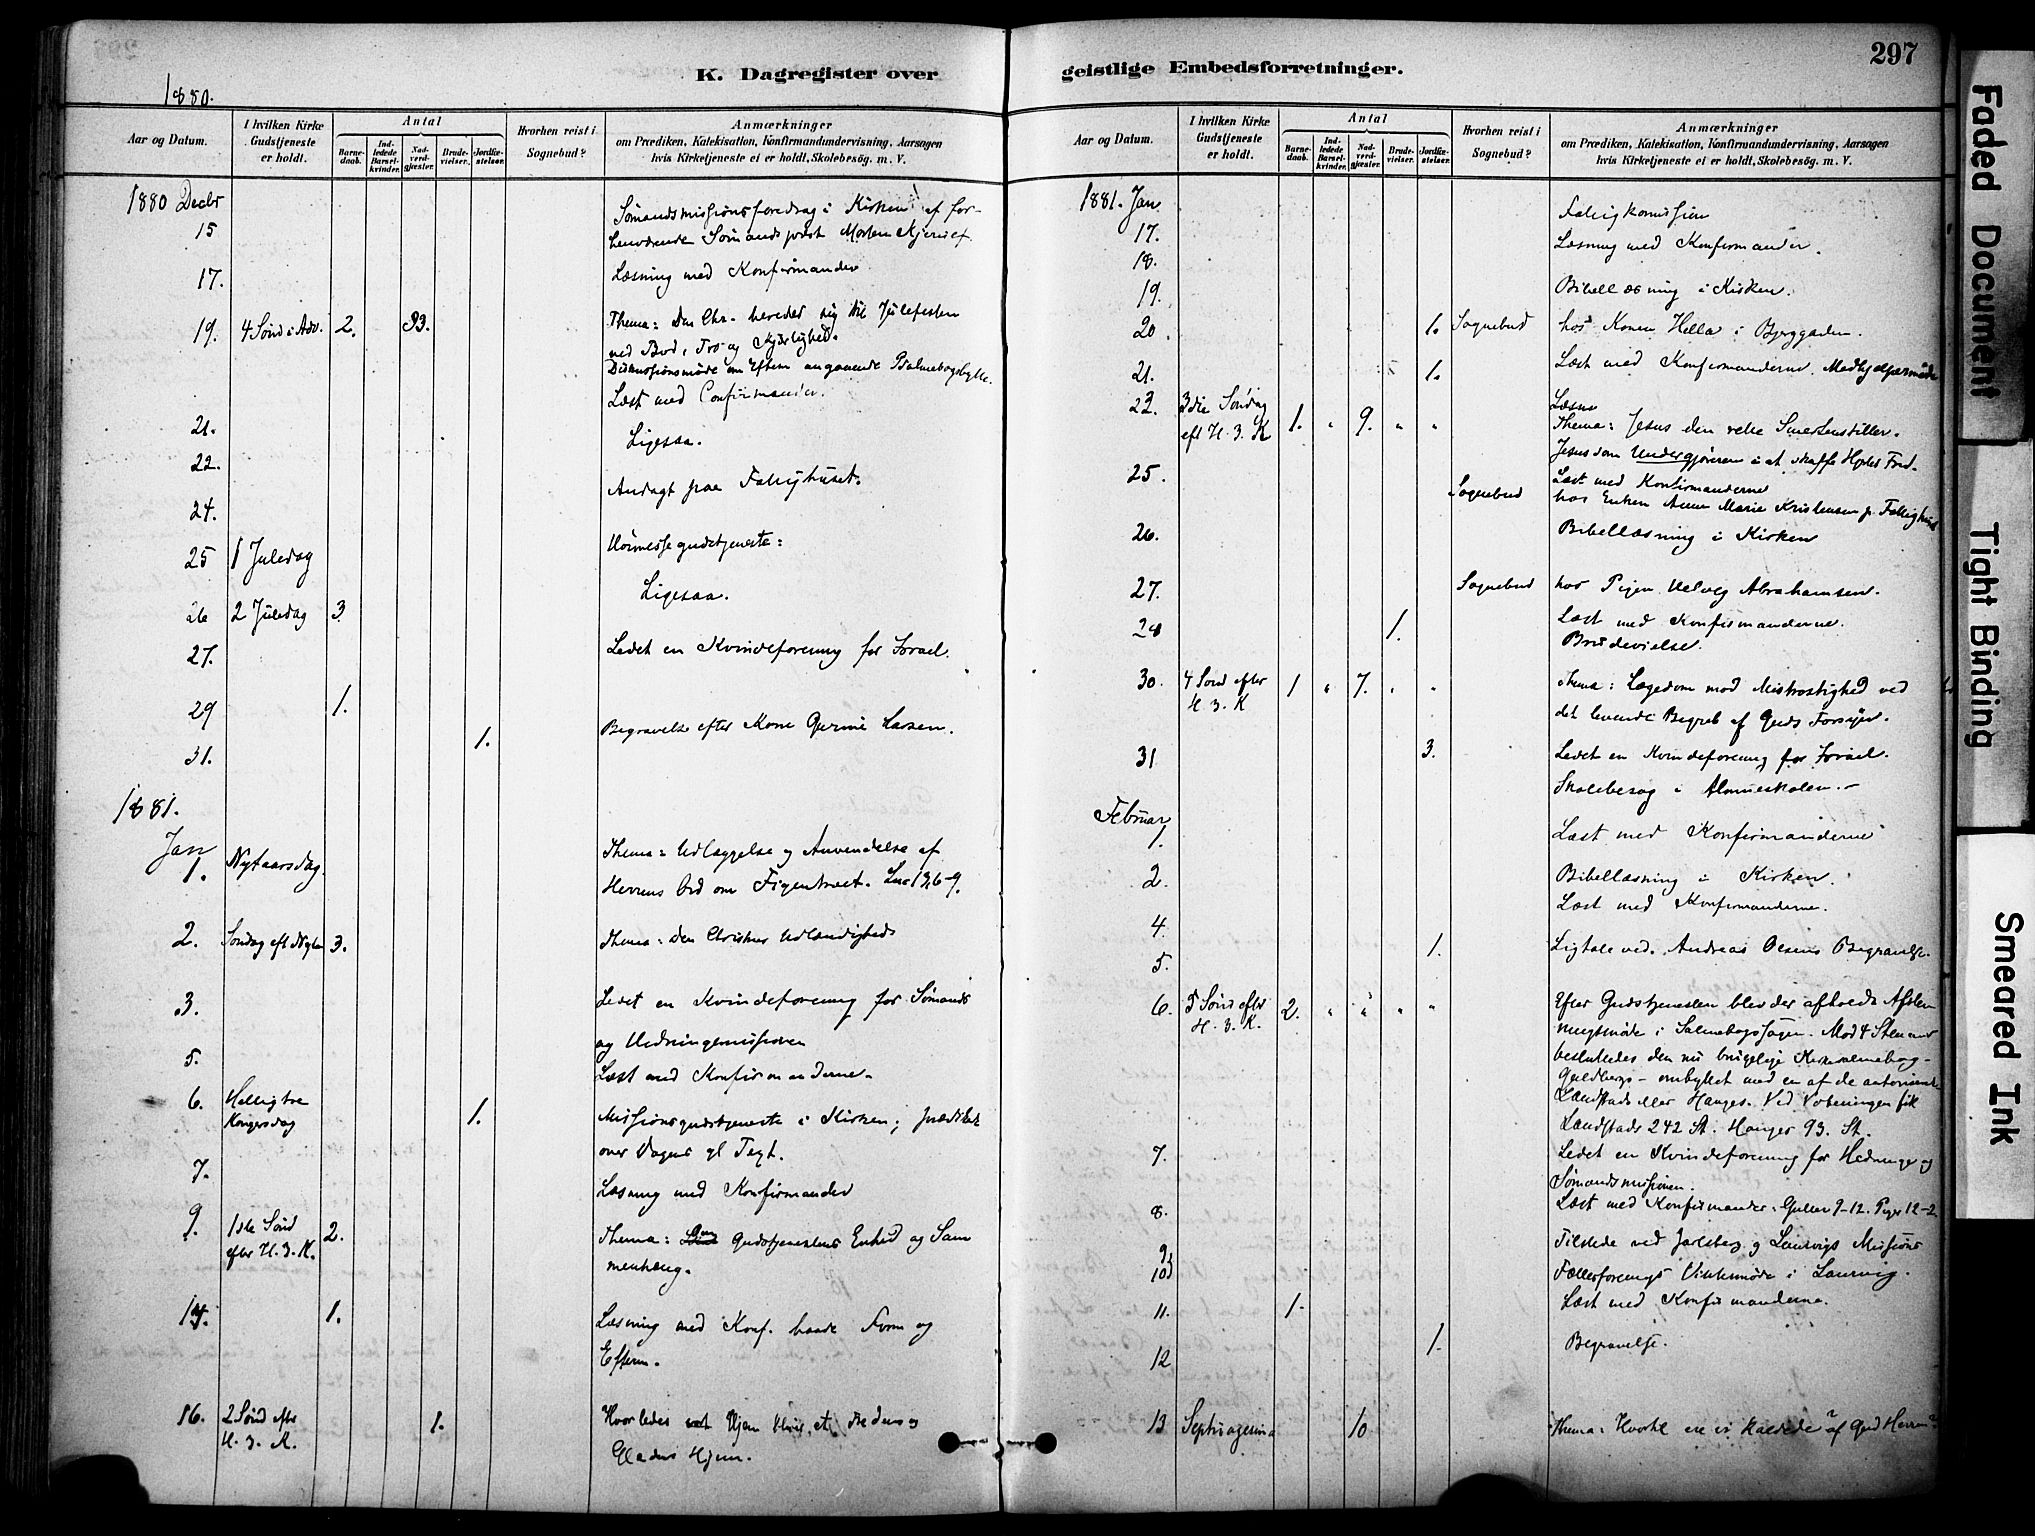 K. Dagregister over
1880.
Aar og Datum.
I hvilken Kirke Gudstjeneste er holdt.
Antal
Barne-daab.
Ind-ledede Barsel-kvinder.
Nad-verd-gjæster.
Brude-vielser.
Jordfæ-stelser.
Hvorhen reist i Sognebud?
Anmærkninger
om Prædiken, Katekisation, Konfirmandundervisning, Aarsagen
hvis Kirketjeneste ei er holdt, Skolebesög. m. V.
1880 Decbr
15 Sømandsmissionsforedrag i Kirken af for-
henværende Sømandspræst Morten
17. Læsning med Konfirmander
19. 4 Sønd i Adv. 2. 93. Thema: Den Chr. bereder sig til Julefesten
ved Bod, Tro og Kjærlighed.
Diskussionsmøde om Efterm angaaende Psalmebogsbytte.
21. Læst med Confirmander.
22. Ligesaa.
24. Andagt paa Fattighuset.
25 1 Juledag Høimessegudstjeneste:
26 2 Juledag 3 Ligesaa.
27. Ledet en Kvindeforening for Israel.
29 1.
31. 1. Begravelse efter Kone Larsen.
1881.
Jan
1. Nytaarsdag. Thema: Udlæggelse og Anvendelse af
Herrens Ord om Figentræet. Luc 13,6-9.
2. Søndag eft Nytaar 3. Thema: den Christnes Udlændighed
3. Ledet en Kvindeforening for Sømands
og Hedningemissionen
5. Læst med Konfirmanderne.
6. Hellig tre Kongersdag 1. Missionsgudstjeneste i Kirken; prædiket
over Dagens gl Text.
7. Læsning med Konfirmander
9. 1ste Sønd efter H. 3. K. 2. Thema: Gudstjenestens Enhed og Sam
menhæng.
14. 1. Læsning med Konf. baade Form og
Efterm.
16. 2 Sønd efter H. 3. K. 1. Hvorledes Hjem bliver et Fredens og
Glædens Hjem.
geistlige Embedsforretninger.
297
Aar og Datum.
I hvilken Kirke Gudstjeneste er holdt.
Antal
Barne-daab.
Ind-ledede Barsel-kvinder.
Nad-verd-gjæster.
Brude-vielser.
Jordfæ-stelser.
Hvorhen reist i Sognebud?
Anmærkninger
om Prædiken, Katekisation, Konfirmandundervisning, Aarsagen
hvis Kirketjeneste ei er holdt, Skolebesög. m. V.
1881. Jan
17. Fattigkomission
18. Læsning med Konfirmander.
19. Bibellæsning i Kirken.
20. 1. Sognebud hos Konen Hella i Bjerggaden.
21. 1. Læst med Konfirmanderne. Medhjælpermøde
23. 3die Søndag eft H. 3. K 1. " 9. " " Læsn
Thema: Jesus den rette Smertenstiller.
Jesus som Undergjøreren i at skaffe Hjertet Fred.
25. Læst med Konfirmanderne
Sognebud hos Enken Anne Marie Kristensen p. Fattighus
26. Bibellæsning i Kirken
27. Sognebud hos Pigen Abrahamsen.
28 1. Læst med Konfirmanderne.
Brudevielse.
30. 4 Sønd efter H. 3. K 1 " 7. " " Thema: Lægedom mod Mistrøstighed ved
det levende Begreb af Guds Forsyn.
31 3. Ledet en Kvindeforening for Israel.
Skolebesøg i Almueskolen.
Februar
1. Læst med Konfirmanderne
2. Bibellæsning i Kirken.
4. Læst med Konfirmanderne.
5. 1. Ligtale ved Andreas Olsens Begravelse.
6. 5 Sønd efter H. 3. K. 2. " " " " Efter Gudstjenesten blev der afholdt Afstem
ningsmøde i Salmebogssagen. Mod 4 Stemmer
besluttedes den nu brugelige Kirkesalmebog-
Guldbergs - ombyttet med en af de autoriserede
Landstads eller Hauges. Ved Voteringen fik
Landstads 242 St. Hauges 93. St.
7. Ledet en Kvindeforening for Hedninge og
Sømandsmissionen.
8. Læst med Konfirmander: Gutter 9-12. Piger 12-2
9/10 Tilstede ved Jarlsberg og Laurvigs Missions
Fællesforenings Vintermøde i Laurvig.
11. 1- Læst med Konfirmanderne.
12 1- Begravelse.
13 Septuagesima 10 Thema: Hvortil ere vi kaldede af Gud Herren?
Faded Document
Tight Binding
Smeared Ink